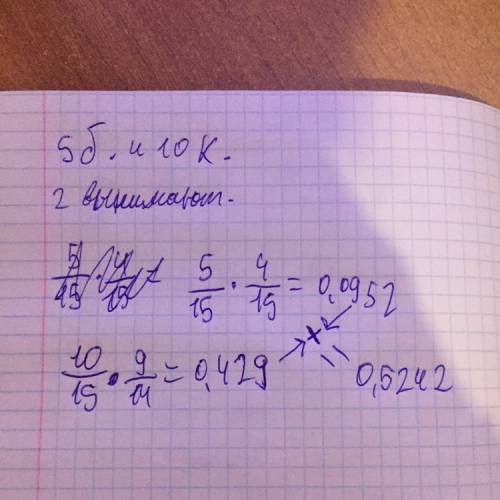 5б. и 10 к.
2 вынимают.
5/15 · 4/15 = 0,0952
10/15 · 9/14 = 0,429 + = 0,5242